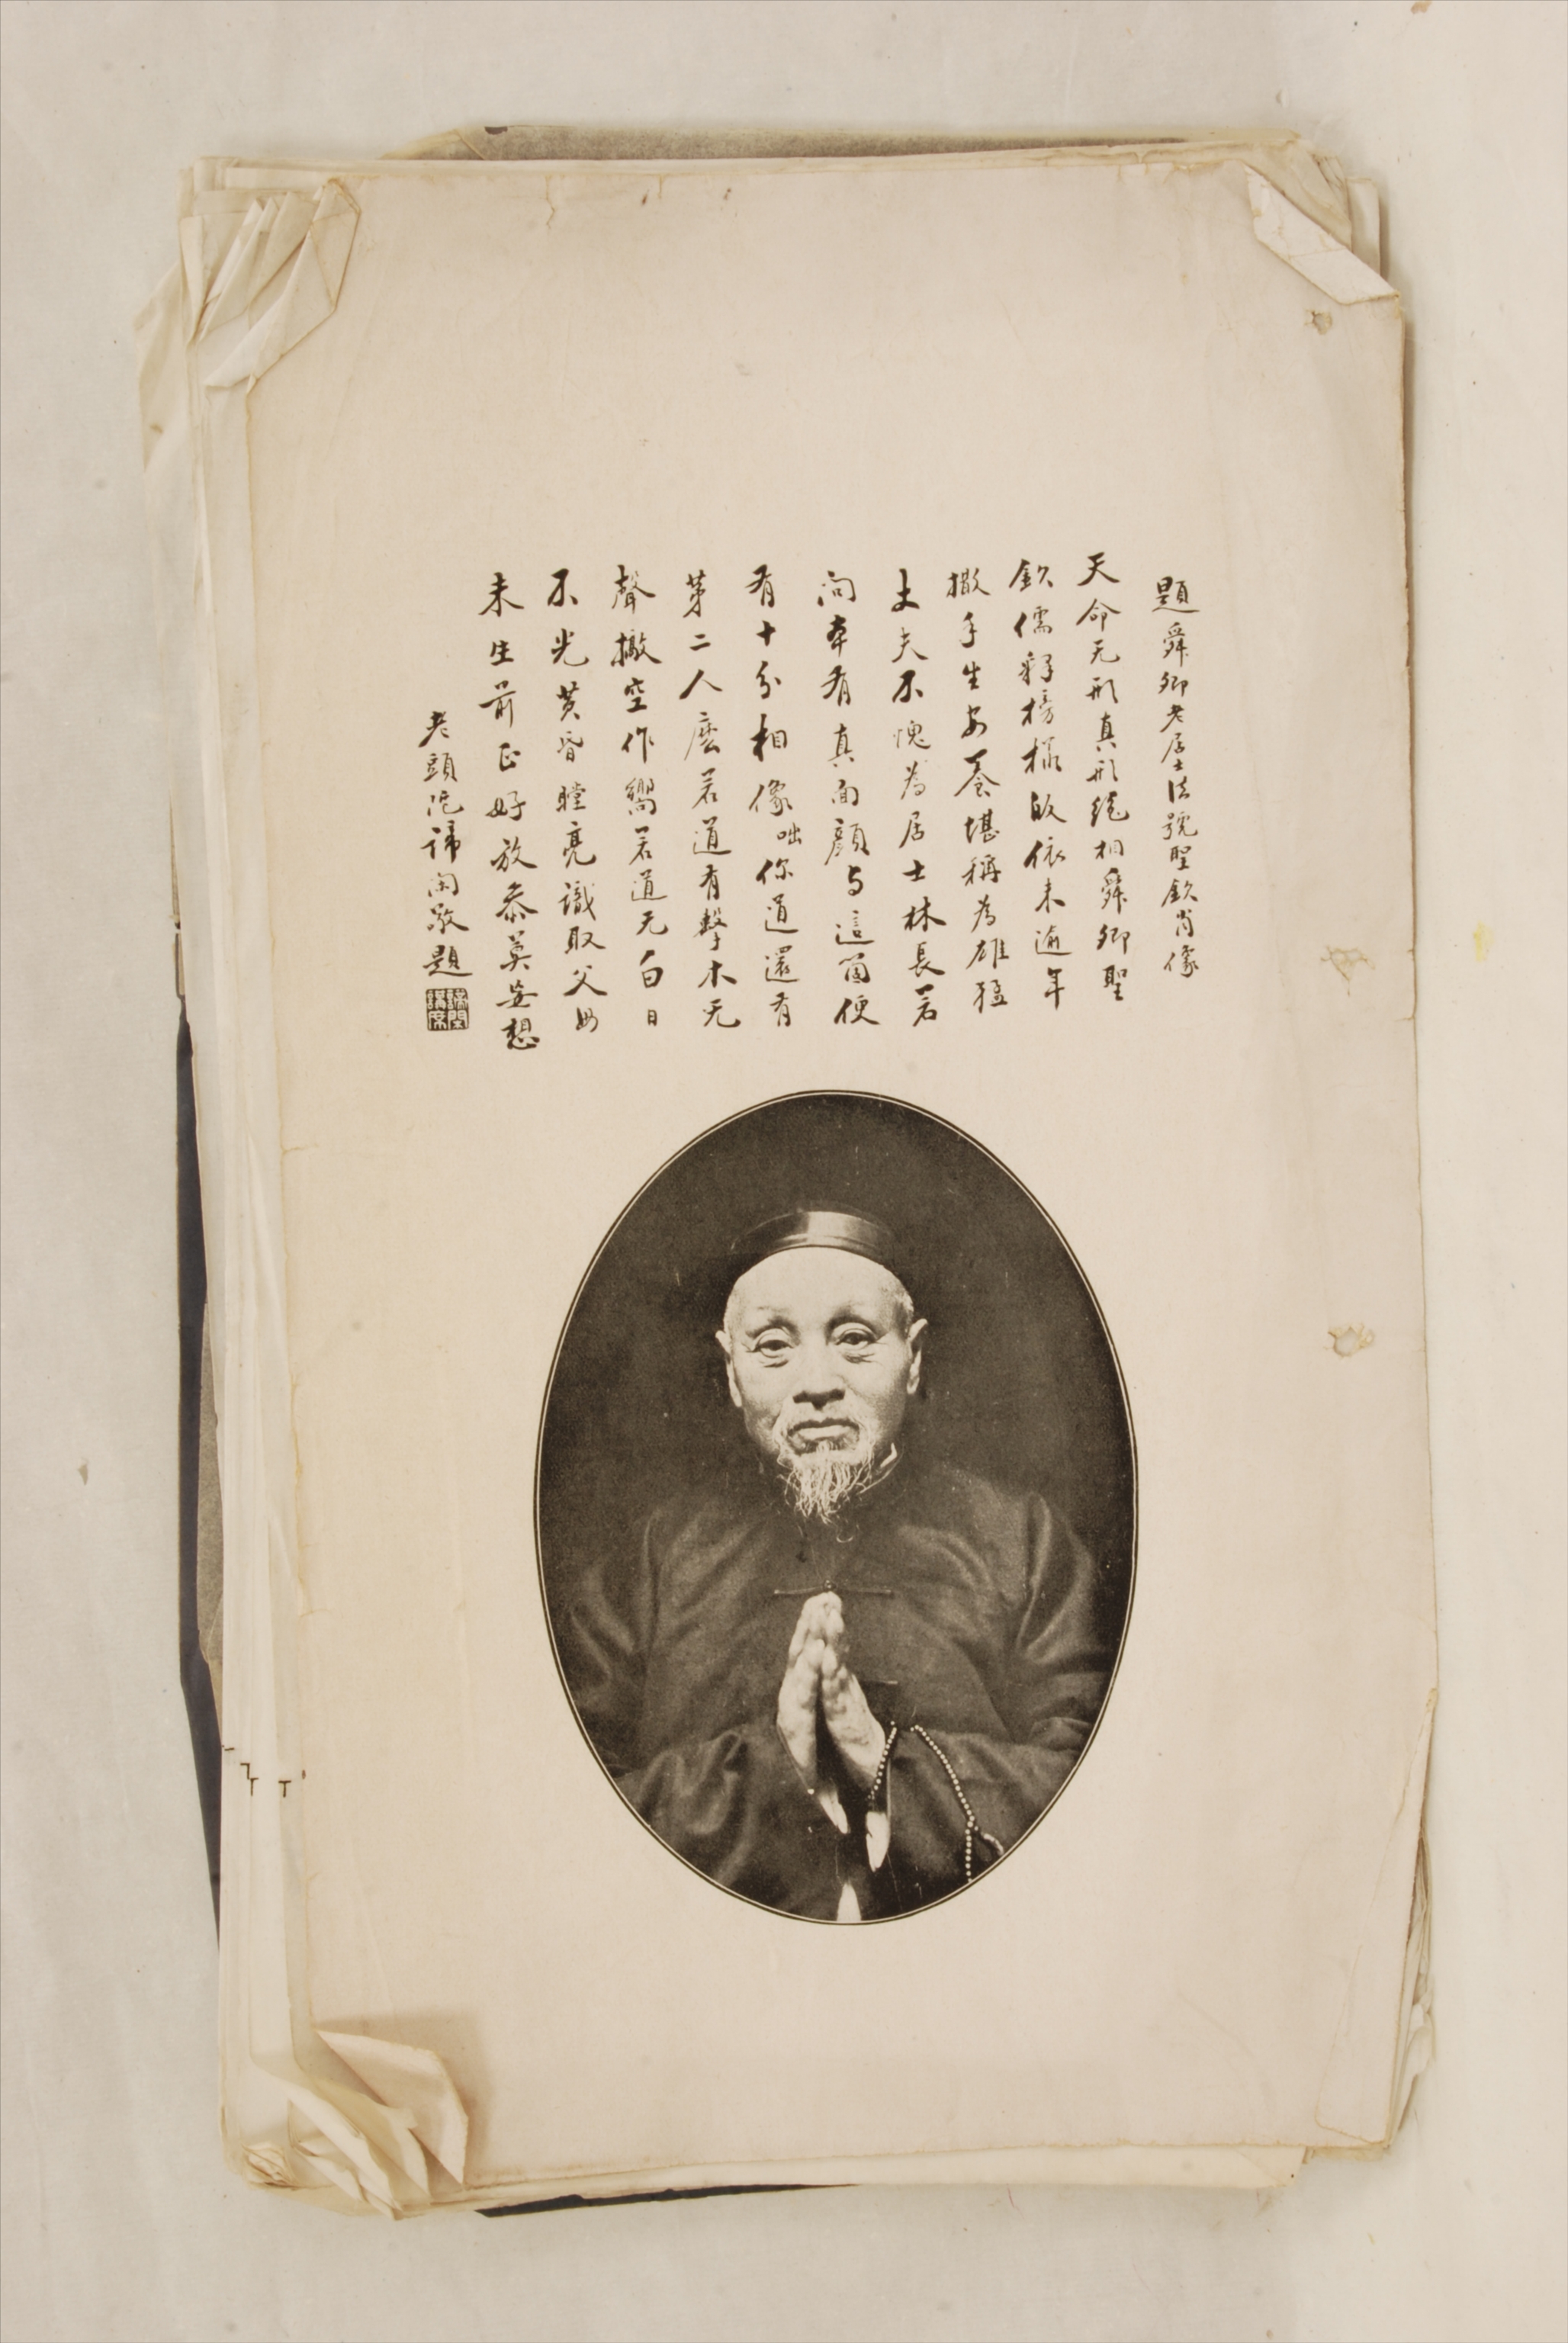 題舜卿老居士法號聖欽肖像
天命无形真形絕相舜卿聖
欽儒釋榜樣皈依未逾年
撒手生安養堪稱為雄猛
丈夫不愧為居士林長若
问本有真面顏与這箇便
有十分相像咄你道還有
第二人麽若道有擊木无
聲撒空作響若道无白日
不光黃昏瞠亮識取父母
未生前正好放參莫妄想
老頭陀諦閑敬題